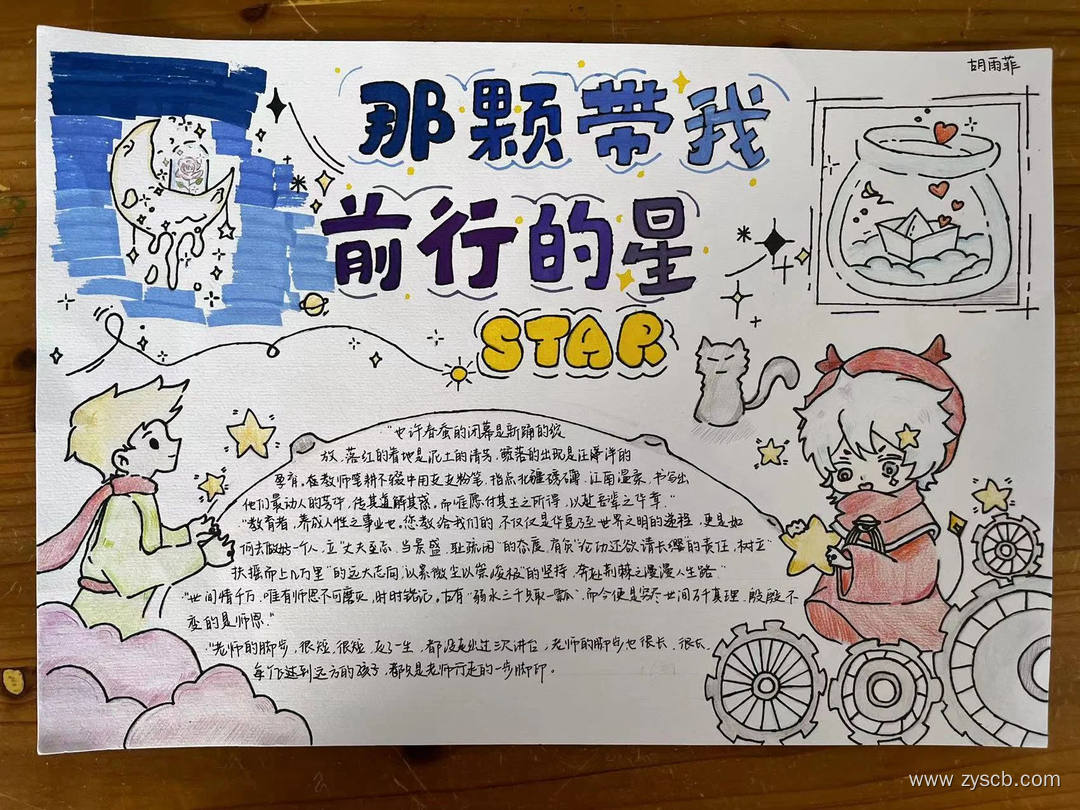 胡雨菲
那颗带我
前行的星
STAR
"也许春蚕的闭幕是斯踊的绽
放.落红的着地是泥土的清芳.
在教师笔耕不辍中用支支粉笔.指点北疆磅礴.江南温柔.书写出
他们最动人的芳华,传其道解其惑,而谁愿付其生之所得,以甚吾辈之华章."
"教育者,养成人性之事业也.您教给我们的不仅仅是华夏乃至世界文明的进程,更是如
何去做好一个人.立"丈夫至志,当景盛,耻疏闲"的态度.有负"论功还欲请长缨"的责任.树立"
扶摇而上九万里"的远大志向,以"累微尘以崇峻极"的坚持,奔赴荆棘之漫漫人生路."
"世间情千万.唯有师恩不可磨灭,时时铭记.古有"弱水三千只取一瓢".而今便是穷尽世间万千真理.殷殷不
变的是师恩."
"老师的脚步,很短,很短,花了一生,都没走出过三尺讲台,老师的脚步也很长,很长.
每个达到远方的孩子,都只是老师行走的一步脚印.
www.zyscb.com